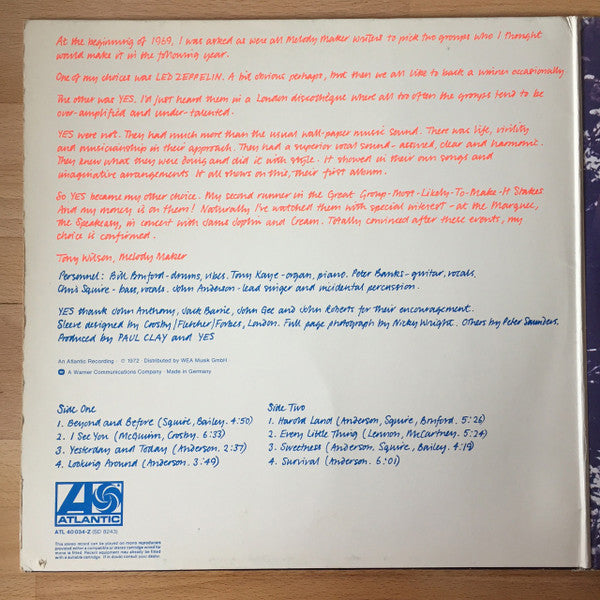 At the beginning of 1969, I was asked as were all Melody Maker writers to pick two groups who I thought
would make it in the following year.
One of my choices was LED ZEPPELIN. A bit obvious perhaps, but then we all like to back a winner occasionally
The other was YES. I'd just heard them in a London discothèque where all too often the groups tend to be
over-amplified and under-talented.
YES were not. They had much more than the usual wall-paper music sound. There was life, virility
and musicianship in their approach. They had a superior vocal sound - assured, clear and harmonic.
They knew what they were doing and did it with style. It showed in their own songs and
imaginative arrangements It all shows on this, their first album.
So YES became my other choice. My second runner in the Great Group-Most-Likely-To-Make-It Stakes
And my money is on them! Naturally I've watched them with special interest - at the Marquee,
the Speakeasy, in concert with Janis Joplin and Cream. Totally convinced after these events, my
choice is confirmed.
Tony Wilson, Melody Maker
Personnel: Bill Bruford - drums, vibes. Tony Kaye - organ, piano. Peter Banks - guitar, vocals,
Chris Squire - bass, vocals. John Anderson - lead singer and incidental percussion.
YES thank John Anthony, Jack Barrie, John Gee and John Roberts for their encouragement.
Sleeve designed by Crosby/Fletcher/Forbes, London. Full page photograph by Nicky Wright. Others by Peter Saunders.
Produced by PAUL CLAY and YES
An Atlantic Recording · ℗ 1972 · Distributed by WEA Musik GmbH.
A Warner Communications Company · Made in Germany
Side One
1. Beyond and Before (Squire, Bailey. 4:50)
2. I See You (McGuinn, Crosby. 6:33)
3. Yesterday and Today (Anderson. 2:37)
4. Looking Around (Anderson. 3:49)
Side Two
1. Harold Land (Anderson, Squire, Bruford. 5:26)
2. Every Little Thing (Lennon, McCartney. 5:24)
3. Sweetness (Anderson, Squire, Bailey. 4:19)
4. Survival (Anderson. 6:01)
ATLANTIC
ATL 40 034-Z (SD 8243)
This stereo record can be played on mono reproducers
provided either a compatible or stereo cartridge wired for
mono is fitted. Recent equipment may already be fitted
with a suitable cartridge. If in doubt consult your dealer.